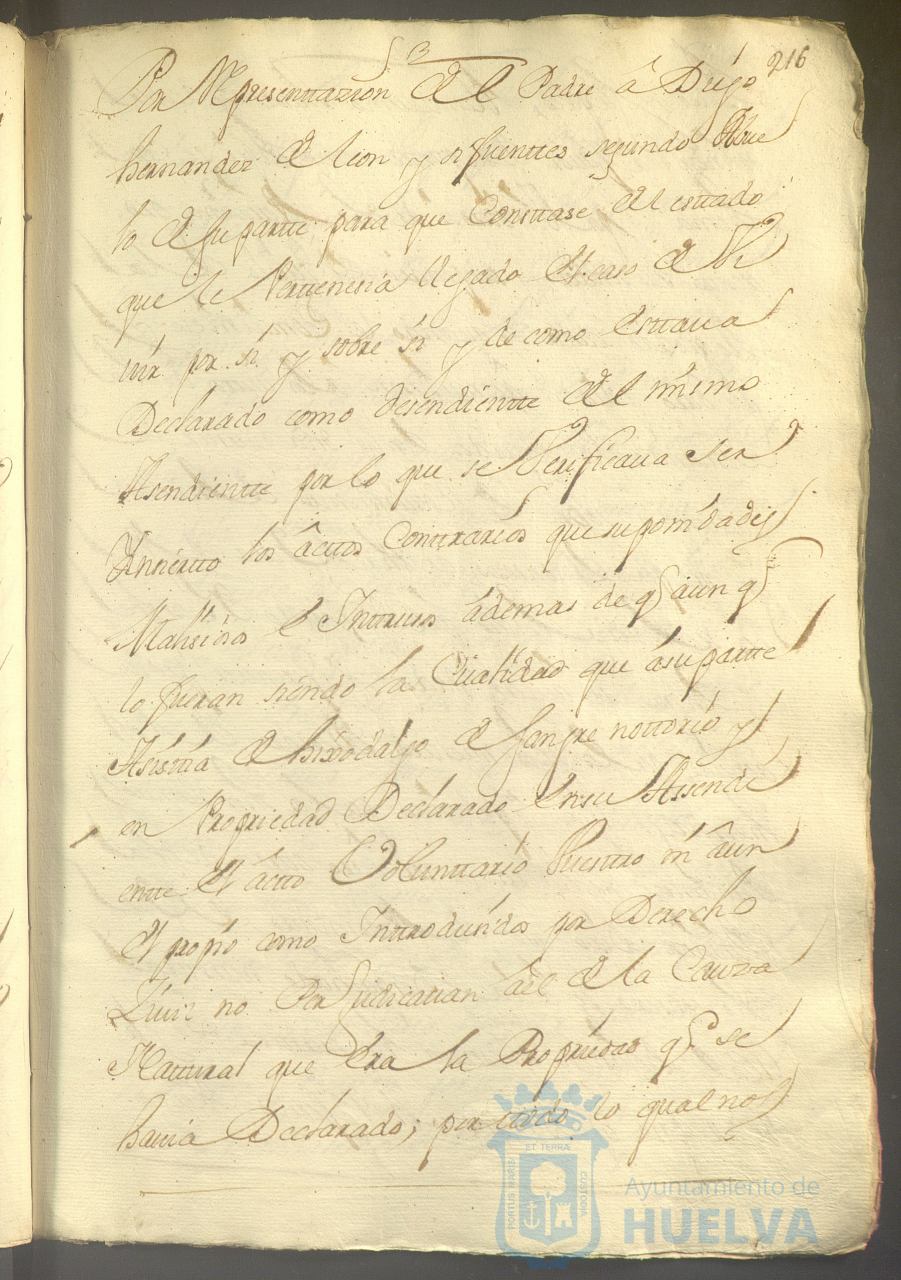 216
Por Representtazion del Padre â Diego
hernandez de leon y sifuenttes segundo Abue
lo de su partte, para que Consttase del esttado
que le Perttenesia llegado el caso de Vi
vir por si y sobre si y de como esttaua
Declarado como desendientte del mismo
Asendientte, por lo que se Verificaua ser
Ynnertto los âcttos Conttrarios que
Malisioso e Inttruso âdemas de q aun q
lo fueran siendo la Cualidad que â su partte
Asisttia de hixodalgo de sangre nottorio y
en Propriedad Declarado en su Assendi
entte el âctto Voluntario Puestto ni âun
el propio como Inttroducido por Derecho
Ciuil no Perjudicauan âel de la Cauza
Nattural que era la Propriedad q.e se
hauia Declarado; por ttodo lo qual nos
PORTUS MARIS ET TERRÆ CUSTODIA
Ayuntamiento de
HUELVA